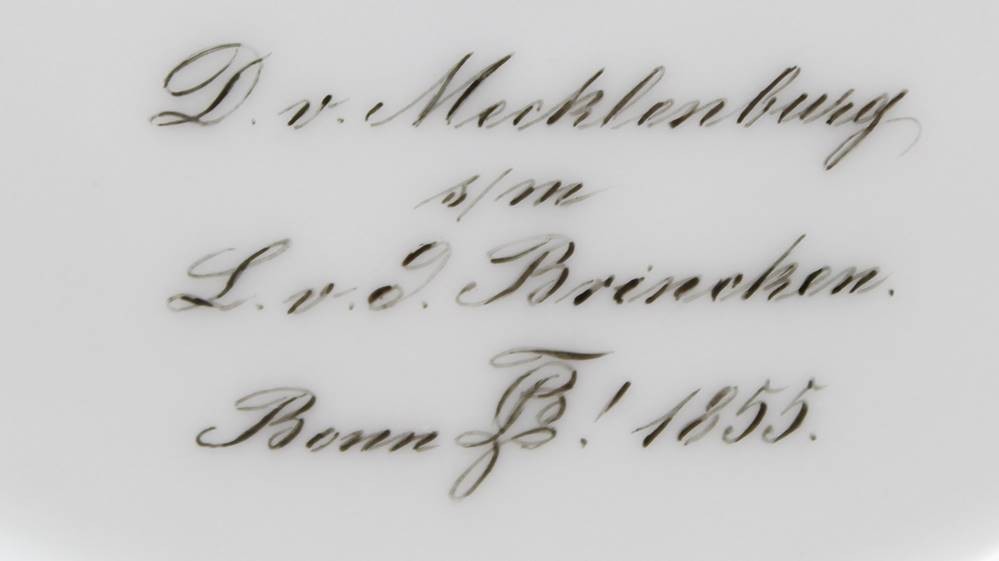 D. v. Mecklenburg
s/m
L. v. d. Brincken.
Bonn ! 1855.